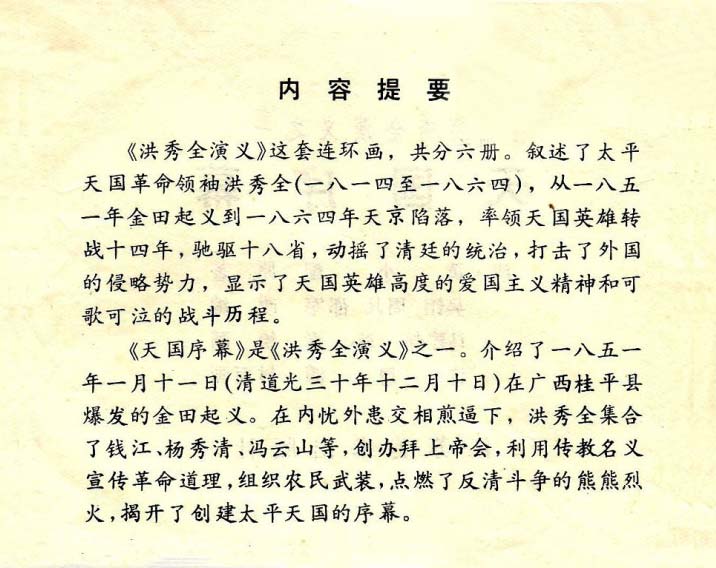 内容提要
《洪秀全演义》这套连环画，共分六册。叙述了太平
天国革命领袖洪秀全(一八一四至一八六四)，从一八五
一年金田起义到一八六四年天京陷落，率领天国英雄转
战十四年，驰驱十八省，动摇了清廷的统治，打击了外国
的侵略势力，显示了天国英雄高度的爱国主义精神和可
歌可泣的战斗历程。
《天国序幕》是《洪秀全演义》之一。介绍了一八五一
年一月十一日(清道光三十年十二月十日)在广西桂平县
爆发的金田起义。在内忧外患交相煎逼下，洪秀全集合
了钱江、杨秀清、冯云山等，创办拜上帝会，利用传教名义
宣传革命道理，组织农民武装，点燃了反清斗争的熊熊烈
火，揭开了创建太平天国的序幕。